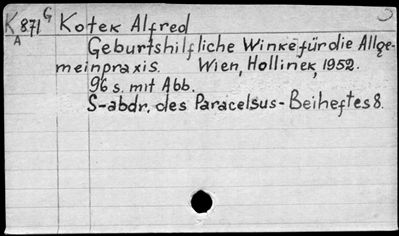 K871 G Kotek Alfred 5
A
Geburtshilfliche Winke für die Allge-
meinpraxis. Wien, Hollinek, 1952.
96 s. mit Abb.
S-abdr. des Paracelsus-Beiheftes 8.